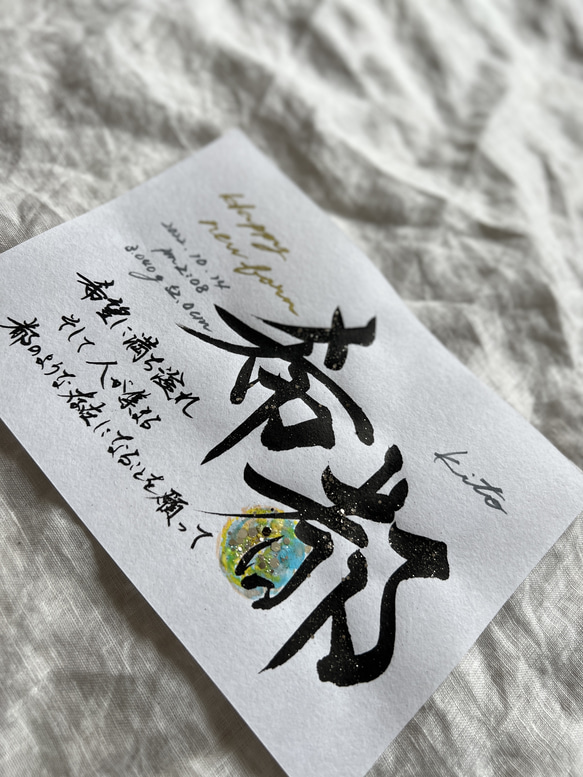 Happy
new forn
2022.10.14
pm.2:08
3.040g 52.0cm
希都
kito
希望に満ち溢れ
そして人が集まる
都のような存在になることを願って